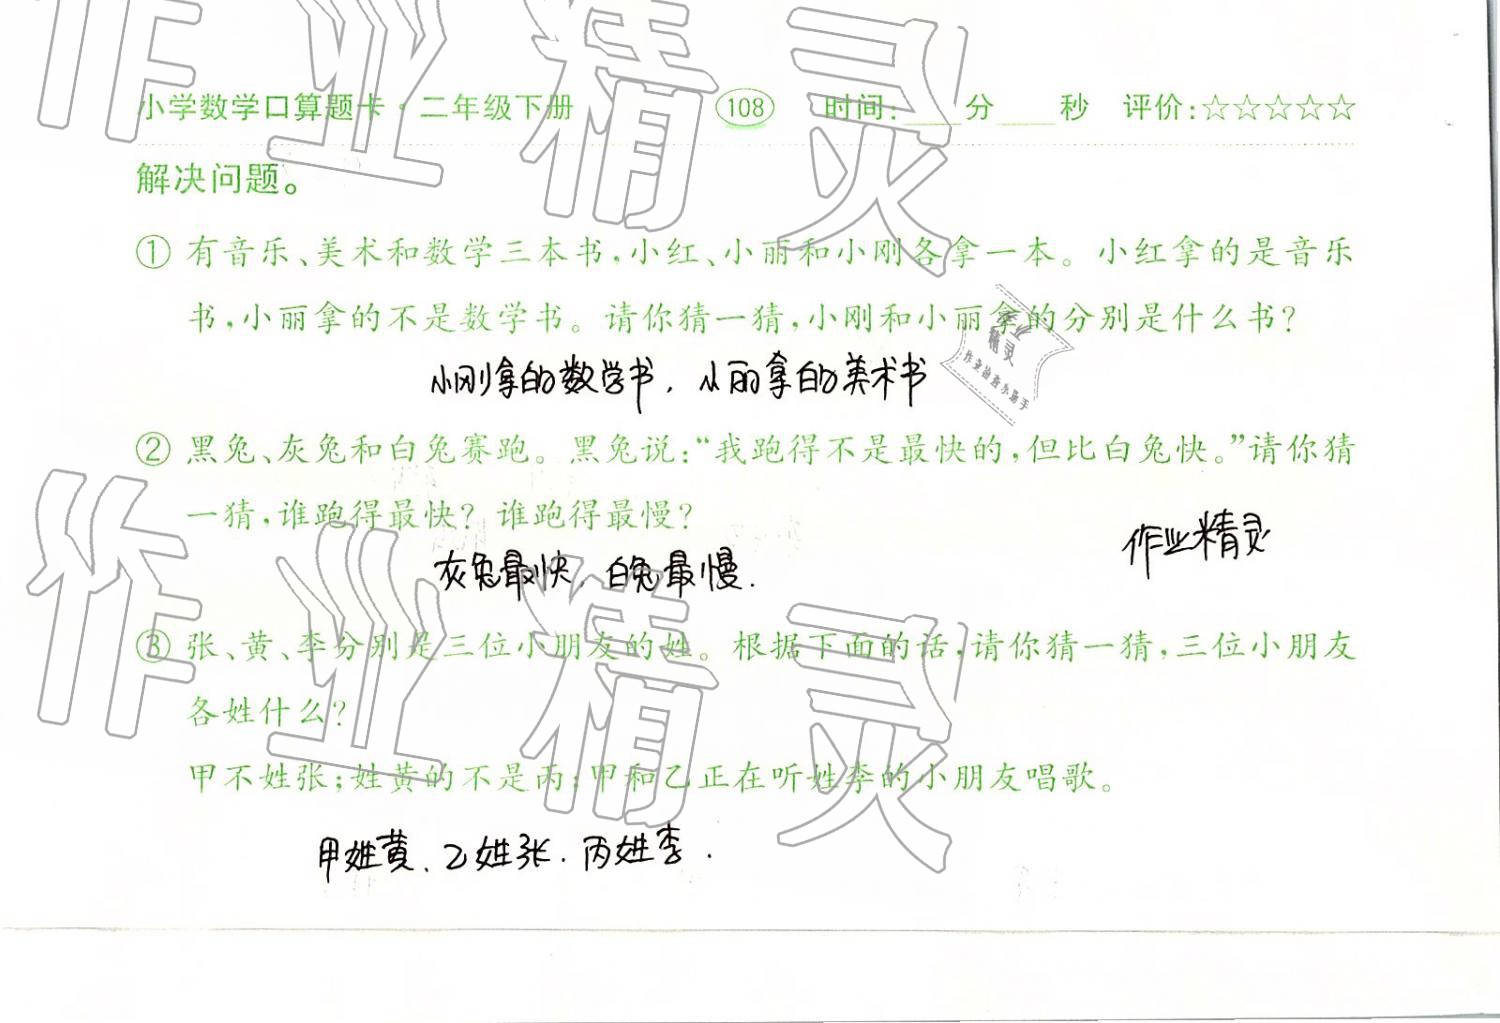 小学数学口算题卡·二年级下册 108 时间:____分____秒 评价:☆☆☆☆☆
解决问题。
① 有音乐、美术和数学三本书,小红、小丽和小刚各拿一本。小红拿的是音乐
书,小丽拿的不是数学书。请你猜一猜,小刚和小丽拿的分别是什么书?
小刚拿的数学书，小丽拿的美术书
② 黑兔、灰兔和白兔赛跑。黑兔说:“我跑得不是最快的,但比白兔快。”请你猜
一猜,谁跑得最快? 谁跑得最慢?
灰兔最快，白兔最慢.
作业精灵
③ 张、黄、李分别是三位小朋友的姓。根据下面的话,请你猜一猜,三位小朋友
各姓什么?
甲不姓张;姓黄的不是丙;甲和乙正在听姓李的小朋友唱歌。
甲姓黄、乙姓张.丙姓李.
作业精灵
作业精灵
精灵
作业检查小助手